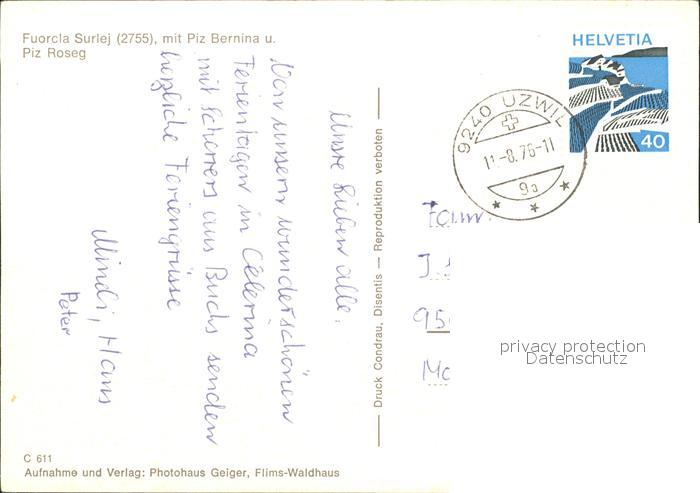 Fuorcla Surlej (2755), mit Piz Bernina u.
Piz Roseg
Unsre Lieben alle.
Von unsern wunderschönen
Ferientagen in Celerina
mit Scherrers aus Buchs senden
herzliche Feriengrüsse
Hans
Peter
C 611
Aufnahme und Verlag: Photohaus Geiger, Flims-Waldhaus
Druck Condrau, Disentis — Reproduktion verboten
HELVETIA
40
9240 UZWIL
11.-8.76-11
9a
Fam.
J.
95
privacy protection
Datenschutz